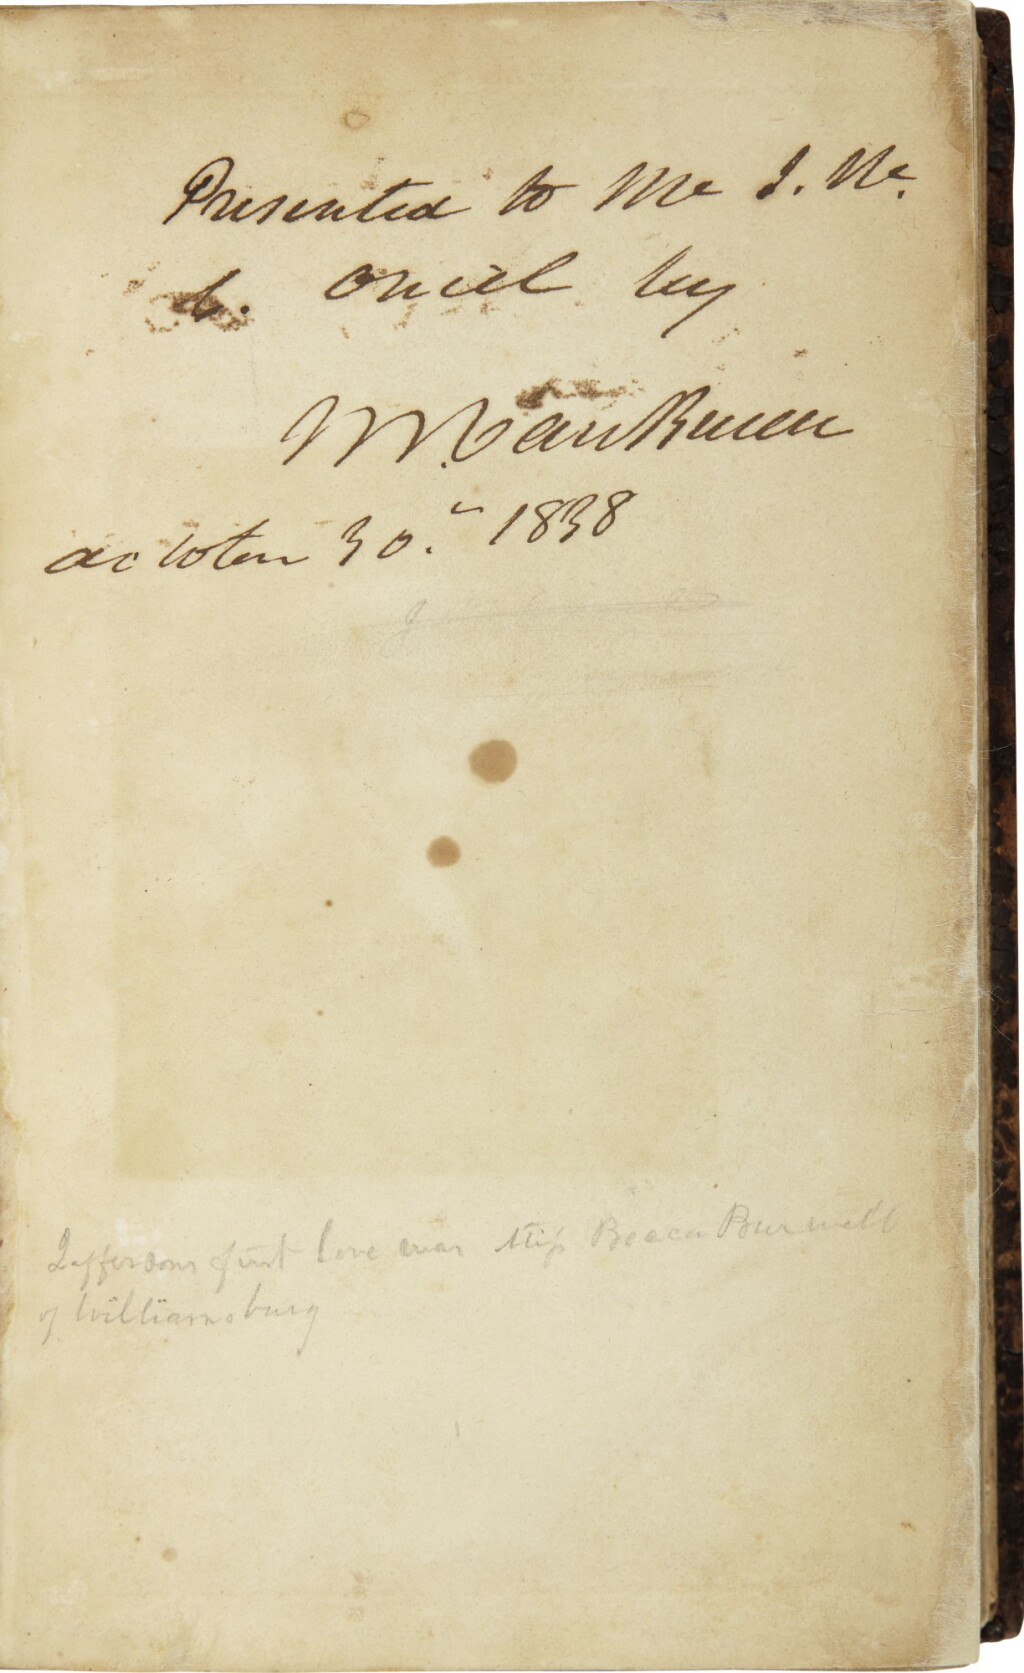 Presented to Mr J. Mc.
C. Oneil by
M. Van Buren
October 30.th 1838
Jeffersons first love was Miss Becca Burwell
of Williamsburg